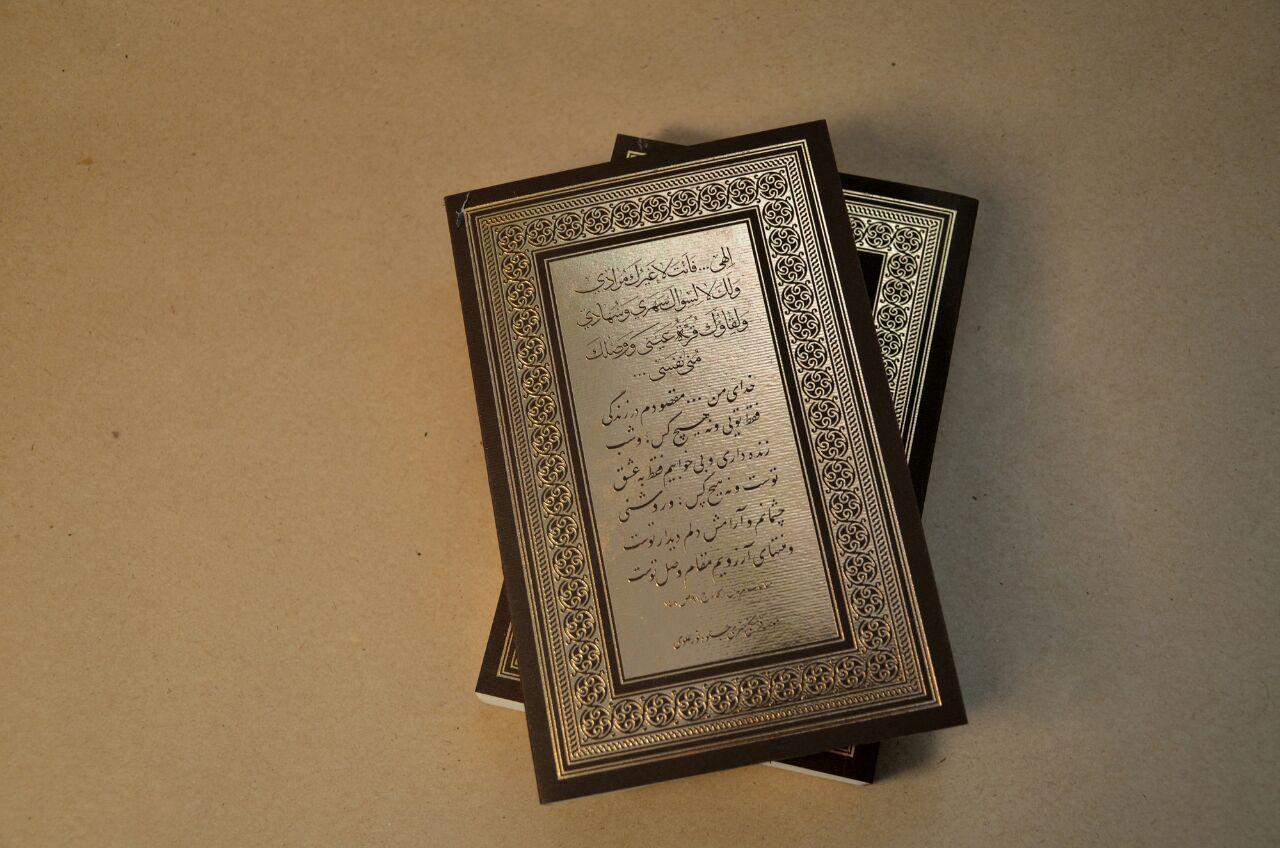 إلهي... فأنت لا غيرك مرادي
ولك لا لسواك سهري وسهادي
ولقاؤك قرة عيني ووصلك
منى نفسي ...
خدای من ... مقصودم در زندگی
فقط تویی و نه هیچ کس؛ و شب
زنده داری و بی خوابیم فقط به عشق
توست و نه هیچ کس؛ و روشنی
چشمانم و آرامش دلم دیدار توست
و منتهای آرزویم مقام وصل توست